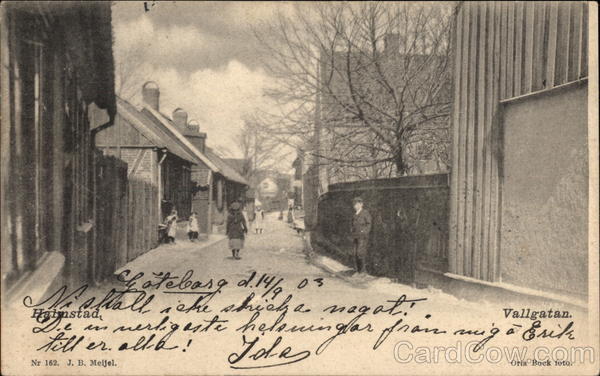 Göteborg d. 14/9 03
Halmstad.
Vallgatan.
Ni skall icke skicka något!
De innerligaste helsningar från mig o Erik
till er alla! Ida
Nr 162. J. B. Meijel.
Orla Bock foto.
CardCow.com